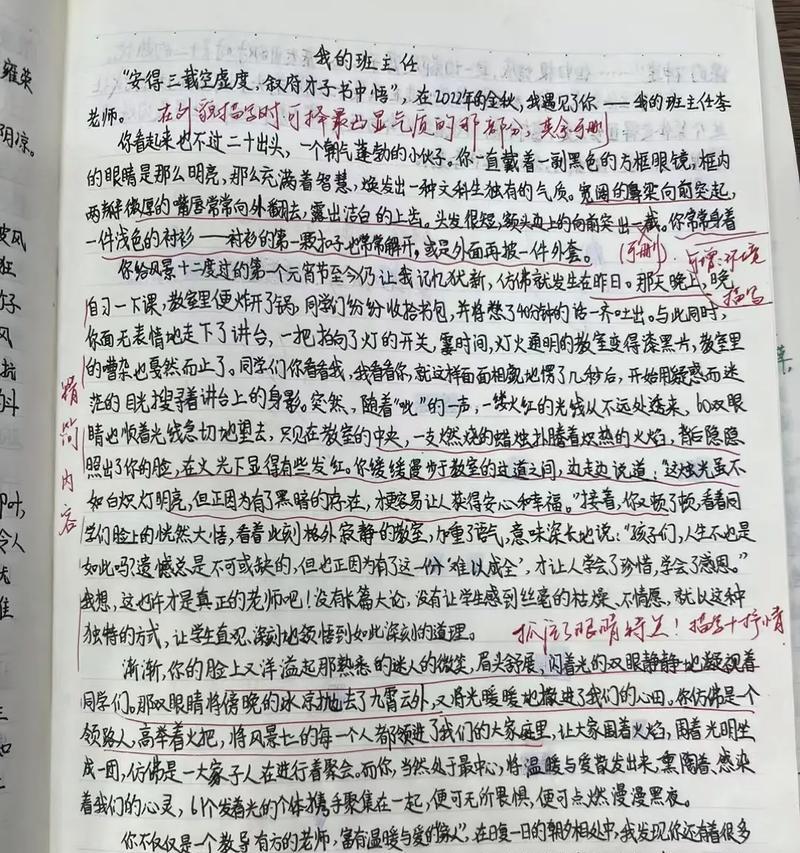 雍荣
阴凉。
我的班主任
“安得三载空虚度，叙府才子书中悟”，在2022年的金秋，我遇见了你——我的班主任李
老师。
在外貌描写时可择最凸显气质的那部分，其余可删
你看起来也不过二十出头，一个朝气蓬勃的小伙子。你一直戴着一副黑色的方框眼镜，框内
的眼睛是那么明亮，那么充满着智慧，焕发出一种文科生独有的气质。宽阔的鼻梁向前突起，
两瓣微厚的嘴唇常常向外翻去，露出洁白的上齿。头发很短，额头边上的向前突出一截。你常常身着
一件浅色的衬衫——衬衫的第一颗扣子也常常解开，或是外面再披一件外套。
(可删)
可增：环境
描写
你给风景十二度过的第一个元宵节至今仍让我记忆犹新，仿佛就发生在昨日。那天晚上，晚
自习一下课，教室里便炸开了锅，同学们纷纷收拾书包，并将憋了40分钟的话一齐吐出。与此同时，
你面无表情地走下了讲台，一把拍向了灯的开关，霎时间，灯火通明的教室变得漆黑一片，教室里
的嘈杂也戛然而止了。同学们你看看我，我看看你，就这样面面相觑地愣了几秒后，开始用疑惑而迷
茫的目光搜寻着讲台上的身影。突然，随着“呲”的一声，一缕火红的光线从不远处透来，60双眼
睛也顺着光线急切地望去，只见在教室的中央，一支燃烧的蜡烛扑腾着炽热的火焰，背后隐隐
照出了你的脸，在火光下显得有些发红。你缓缓漫步于教室的过道之间，边走边说道：“这烛光虽不
如白炽灯明亮，但正因为有了黑暗的存在，才更容易让人获得安心和幸福。”接着，你又顿了顿，看着同
学们脸上的恍然大悟，看着此刻格外寂静的教室，加重了语气，意味深长地说：“孩子们，人生不也是
如此吗？遗憾总是不可或缺的，但也正因为有了这一份‘难以成全’，才让人学会了珍惜，学会了感恩。”
我想，这也许才是真正的老师吧！没有长篇大论，没有让学生感到丝毫的枯燥、不情愿，就以这种
独特的方式，让学生直观、深刻地领悟到如此深刻的道理。
精简内容
抓住了眼睛特点！描写+抒情
渐渐，你的脸上又洋溢起那熟悉的迷人的微笑，眉头舒展，闪着光的双眼静静地凝视着
同学们。那双眼睛将傍晚的冰凉抛去了九霄云外，又将光暖暖地撒进了我们的心田。你仿佛是一个
领路人，高举着火把，将风景七的每一个人都领进了我们的大家庭里，让大家围着火焰，围着光明坐
成一团，仿佛是一大家子人在进行着聚会。而你，当然处于最中心，将温暖与爱散发出来，熏陶着、感染
着我们的心灵，61个发着光的个体携手聚集在一起，便可无所畏惧，便可点燃漫漫黑夜。
你不仅仅是一个教导有方的老师，富有温暖与爱的“家人”，在日复一日的朝夕相处中，我发现你还有着很多